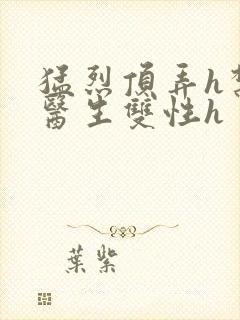 猛烈頂弄h
醫生雙性h
葉紫